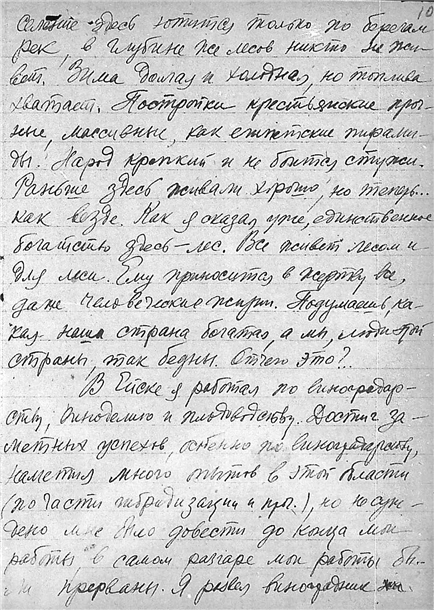 10
селение здесь ютится только по берегам
рек, в глубине же лесов никто не жи-
вет. Зима долгая и холодная, но топлива
хватает. Постройки крестьянские проч-
ные, массивные, как египетские пирами-
ды. Народ крепкий и не боится стужи.
Раньше здесь живали хорошо, но теперь..
как везде. Как я сказал уже, единственное
богатство здесь – лес. Все живет лесом и
для леса. Ему приносится в жертву все,
даже человеческие жизни. Подумаешь, ка-
кая наша страна богатая, а мы, люди этой
страны, так бедны. Отчего это?..
В Ейске я работал по виноградар-
ству, виноделию и плодоводству. Достиг за-
метных успехов, особенно по виноградарству,
наметил много опытов в этой области
(по части гибридизации и пр.), но не суж-
дено мне было довести до конца мои
работы, в самом разгаре мои работы бы-
ли прерваны. Я развел виноградник